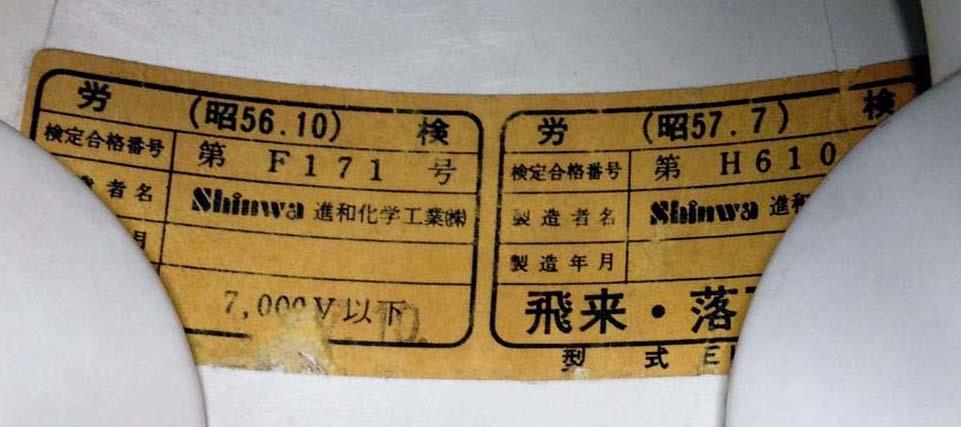 労 (昭56.10) 検
検定合格番号 第 F171 号
者名 Shinwa 進和化学工業㈱
月
7,000V以下
労 (昭57.7) 検
検定合格番号 第 H610
製造者名 Shinwa 進和
製造年月
飛来・落下
型式